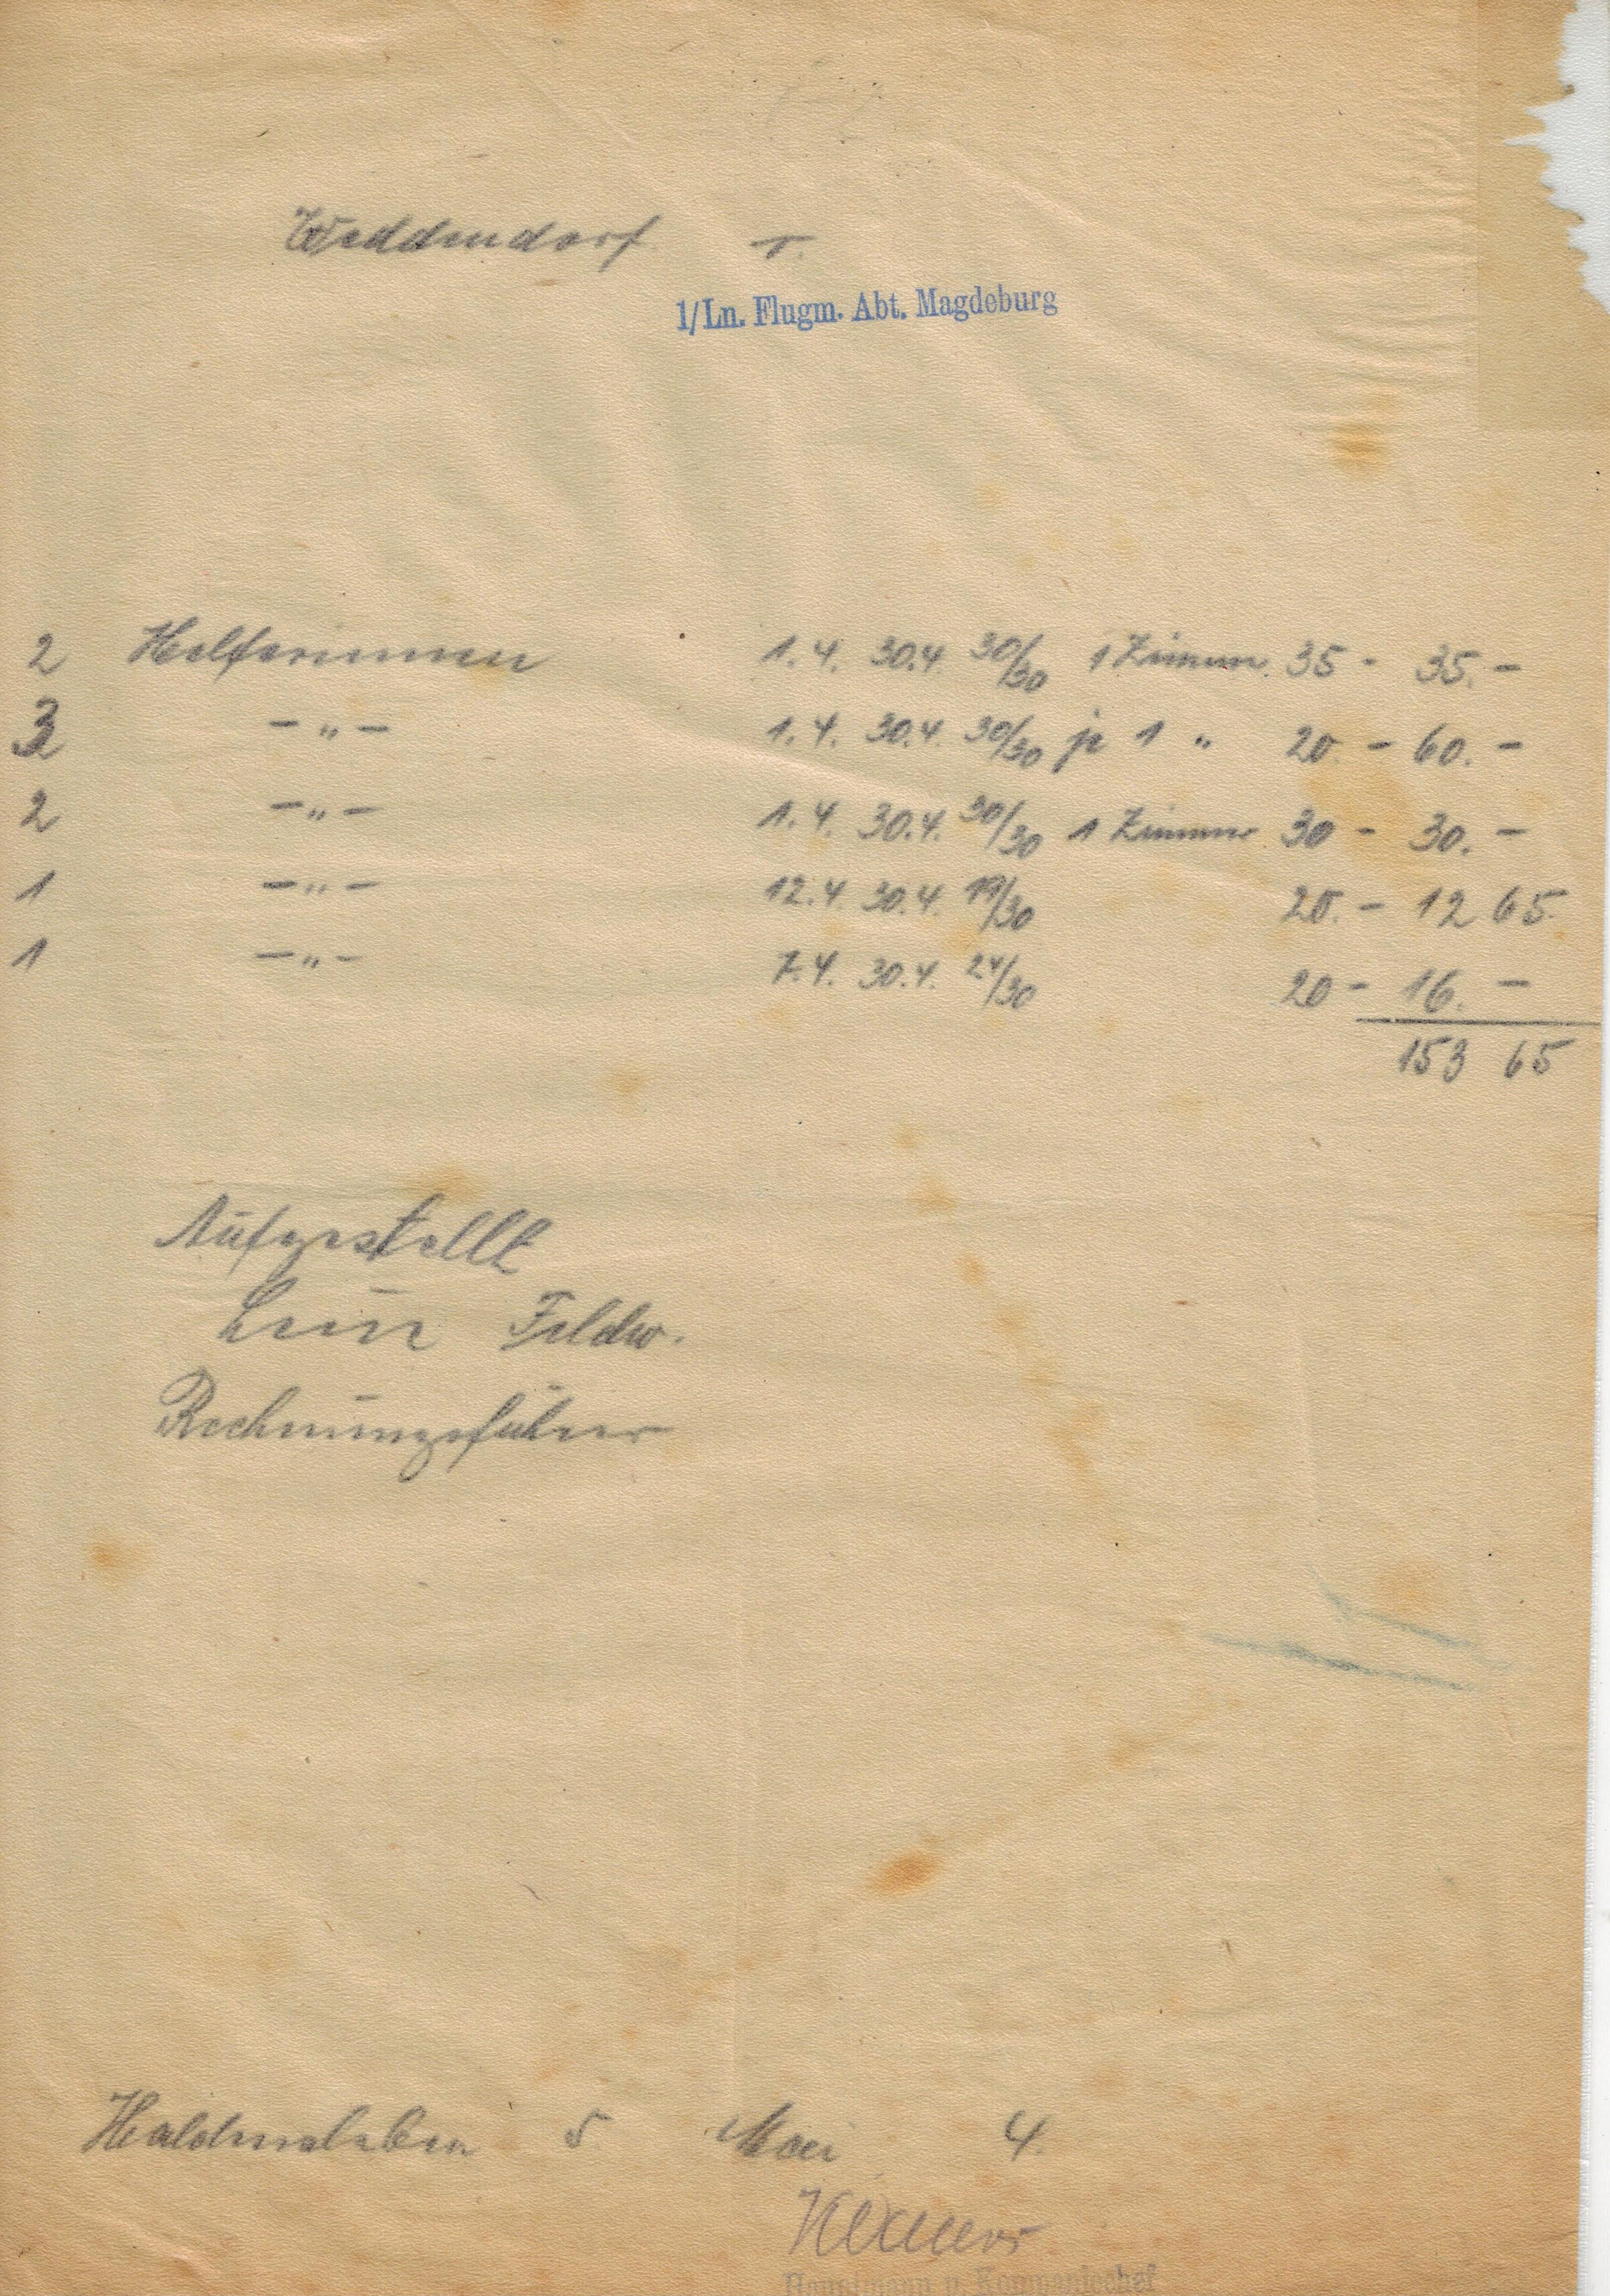 Weddendorf
1/Ln. Flugm. Abt. Magdeburg
2 Helferinnen 1.4. 30.4. 30/30 1 Zimmer 35 - 35.-
3 -„- 1.4. 30.4. 30/30 je 1 „ 20.- 60.-
2 -„- 1.4. 30.4. 30/30 1 Zimmer 30 - 30.-
1 -„- 12.4. 30.4. 19/30 20.- 12 65
1 -„- 7.4. 30.4. 24/30 20 - 16.-
153 65
Aufgestellt
Feldw.
Rechnungsführer
Haldensleben 5 Mai 4.
Hauptmann u. Kompaniechef